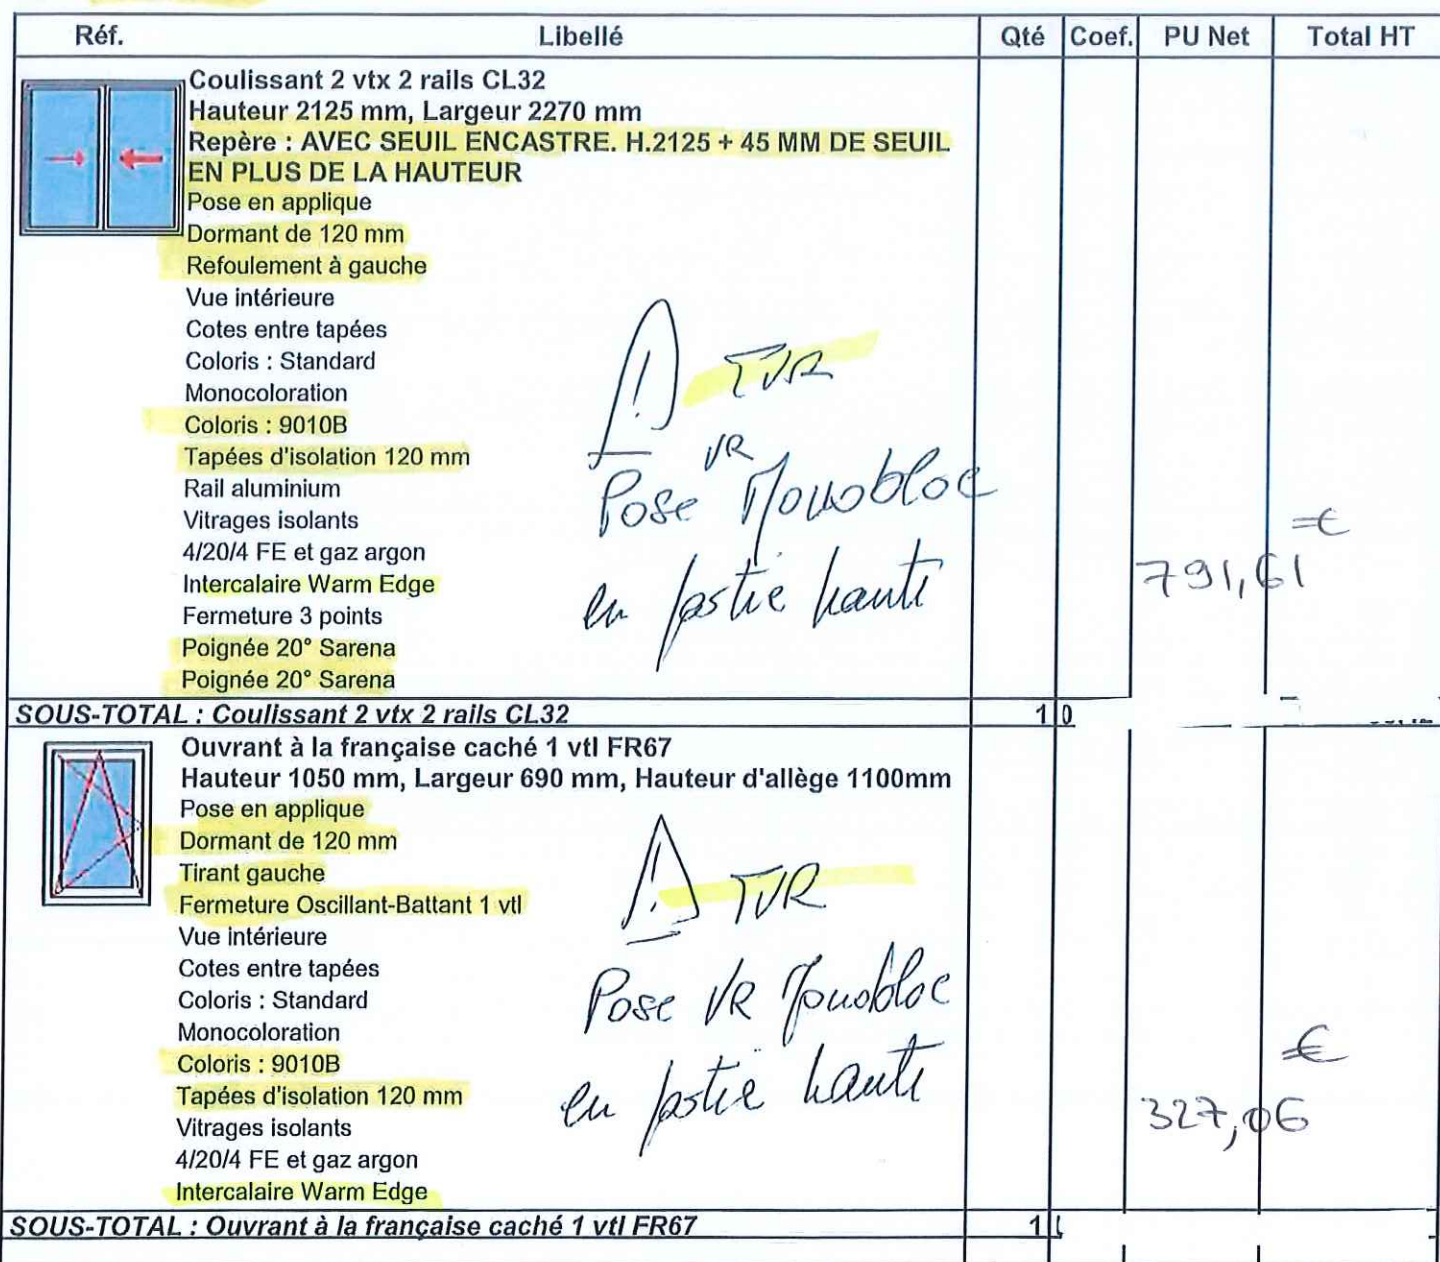 Réf. Libellé Qté Coef. PU Net Total HT
Coulissant 2 vtx 2 rails CL32
Hauteur 2125 mm, Largeur 2270 mm
Repère : AVEC SEUIL ENCASTRE. H.2125 + 45 MM DE SEUIL
EN PLUS DE LA HAUTEUR
Pose en applique
Dormant de 120 mm
Refoulement à gauche
Vue intérieure
Cotes entre tapées
Coloris : Standard
Monocoloration
Coloris : 9010B
Tapées d'isolation 120 mm
Rail aluminium
Vitrages isolants
4/20/4 FE et gaz argon
Intercalaire Warm Edge
Fermeture 3 points
Poignée 20° Sarena
Poignée 20° Sarena
! TVR
VR
Pose Monobloc
en partie haute
€
791,61
SOUS-TOTAL : Coulissant 2 vtx 2 rails CL32 1 0
Ouvrant à la française caché 1 vtl FR67
Hauteur 1050 mm, Largeur 690 mm, Hauteur d'allège 1100mm
Pose en applique
Dormant de 120 mm
Tirant gauche
Fermeture Oscillant-Battant 1 vtl
Vue intérieure
Cotes entre tapées
Coloris : Standard
Monocoloration
Coloris : 9010B
Tapées d'isolation 120 mm
Vitrages isolants
4/20/4 FE et gaz argon
Intercalaire Warm Edge
! TVR
Pose VR Monobloc
en partie haute
€
327,06
SOUS-TOTAL : Ouvrant à la française caché 1 vtl FR67 1